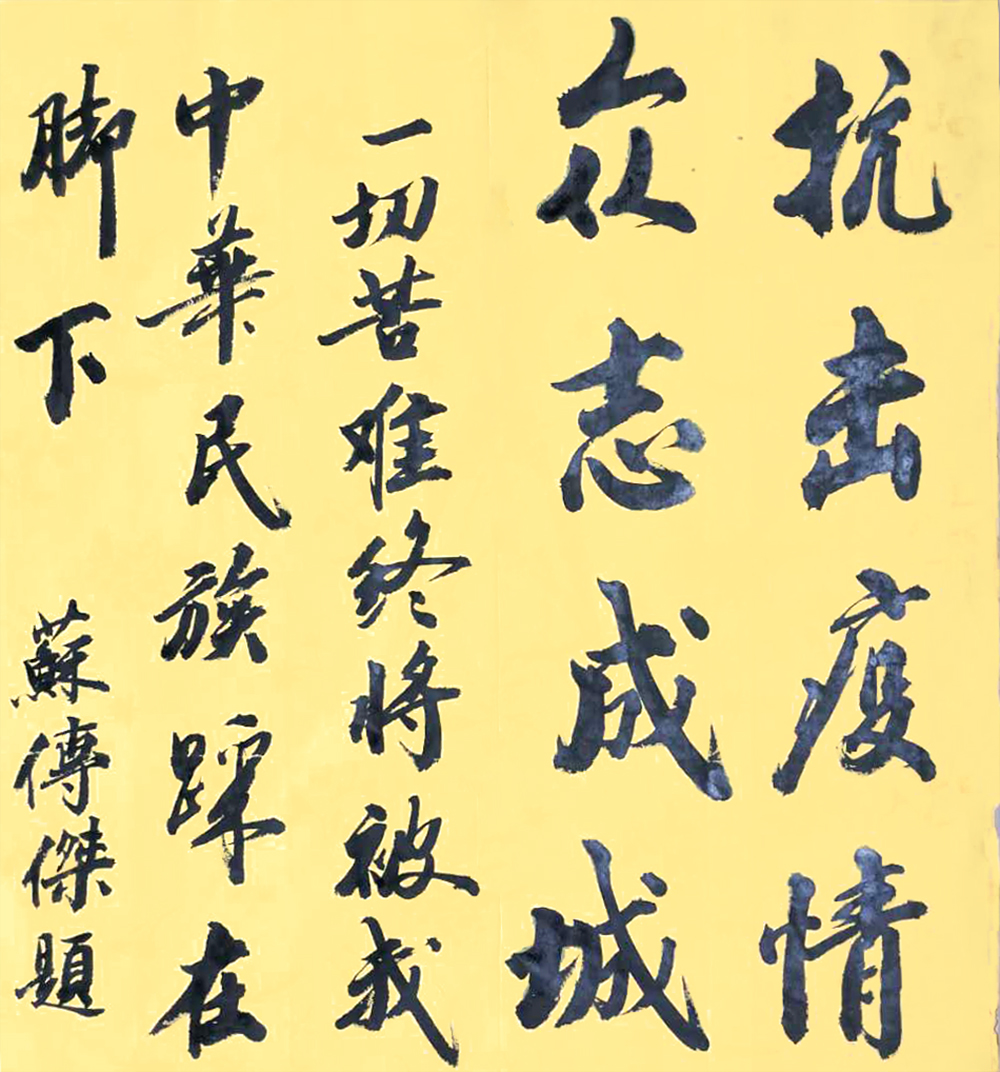 抗击疫情
众志成城
一切苦难终将被我
中華民族踩在
脚下
蘇傳傑題